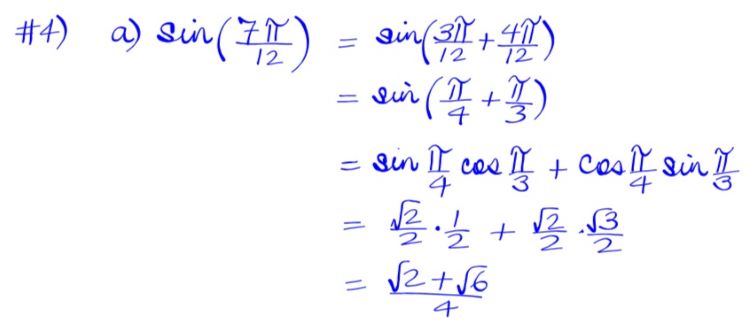 #4) a) sin(7π/12) = sin(3π/12 + 4π/12)
= sin(π/4 + π/3)
= sin π/4 cos π/3 + cos π/4 sin π/3
= √2/2 · 1/2 + √2/2 · √3/2
= (√2 + √6)/4